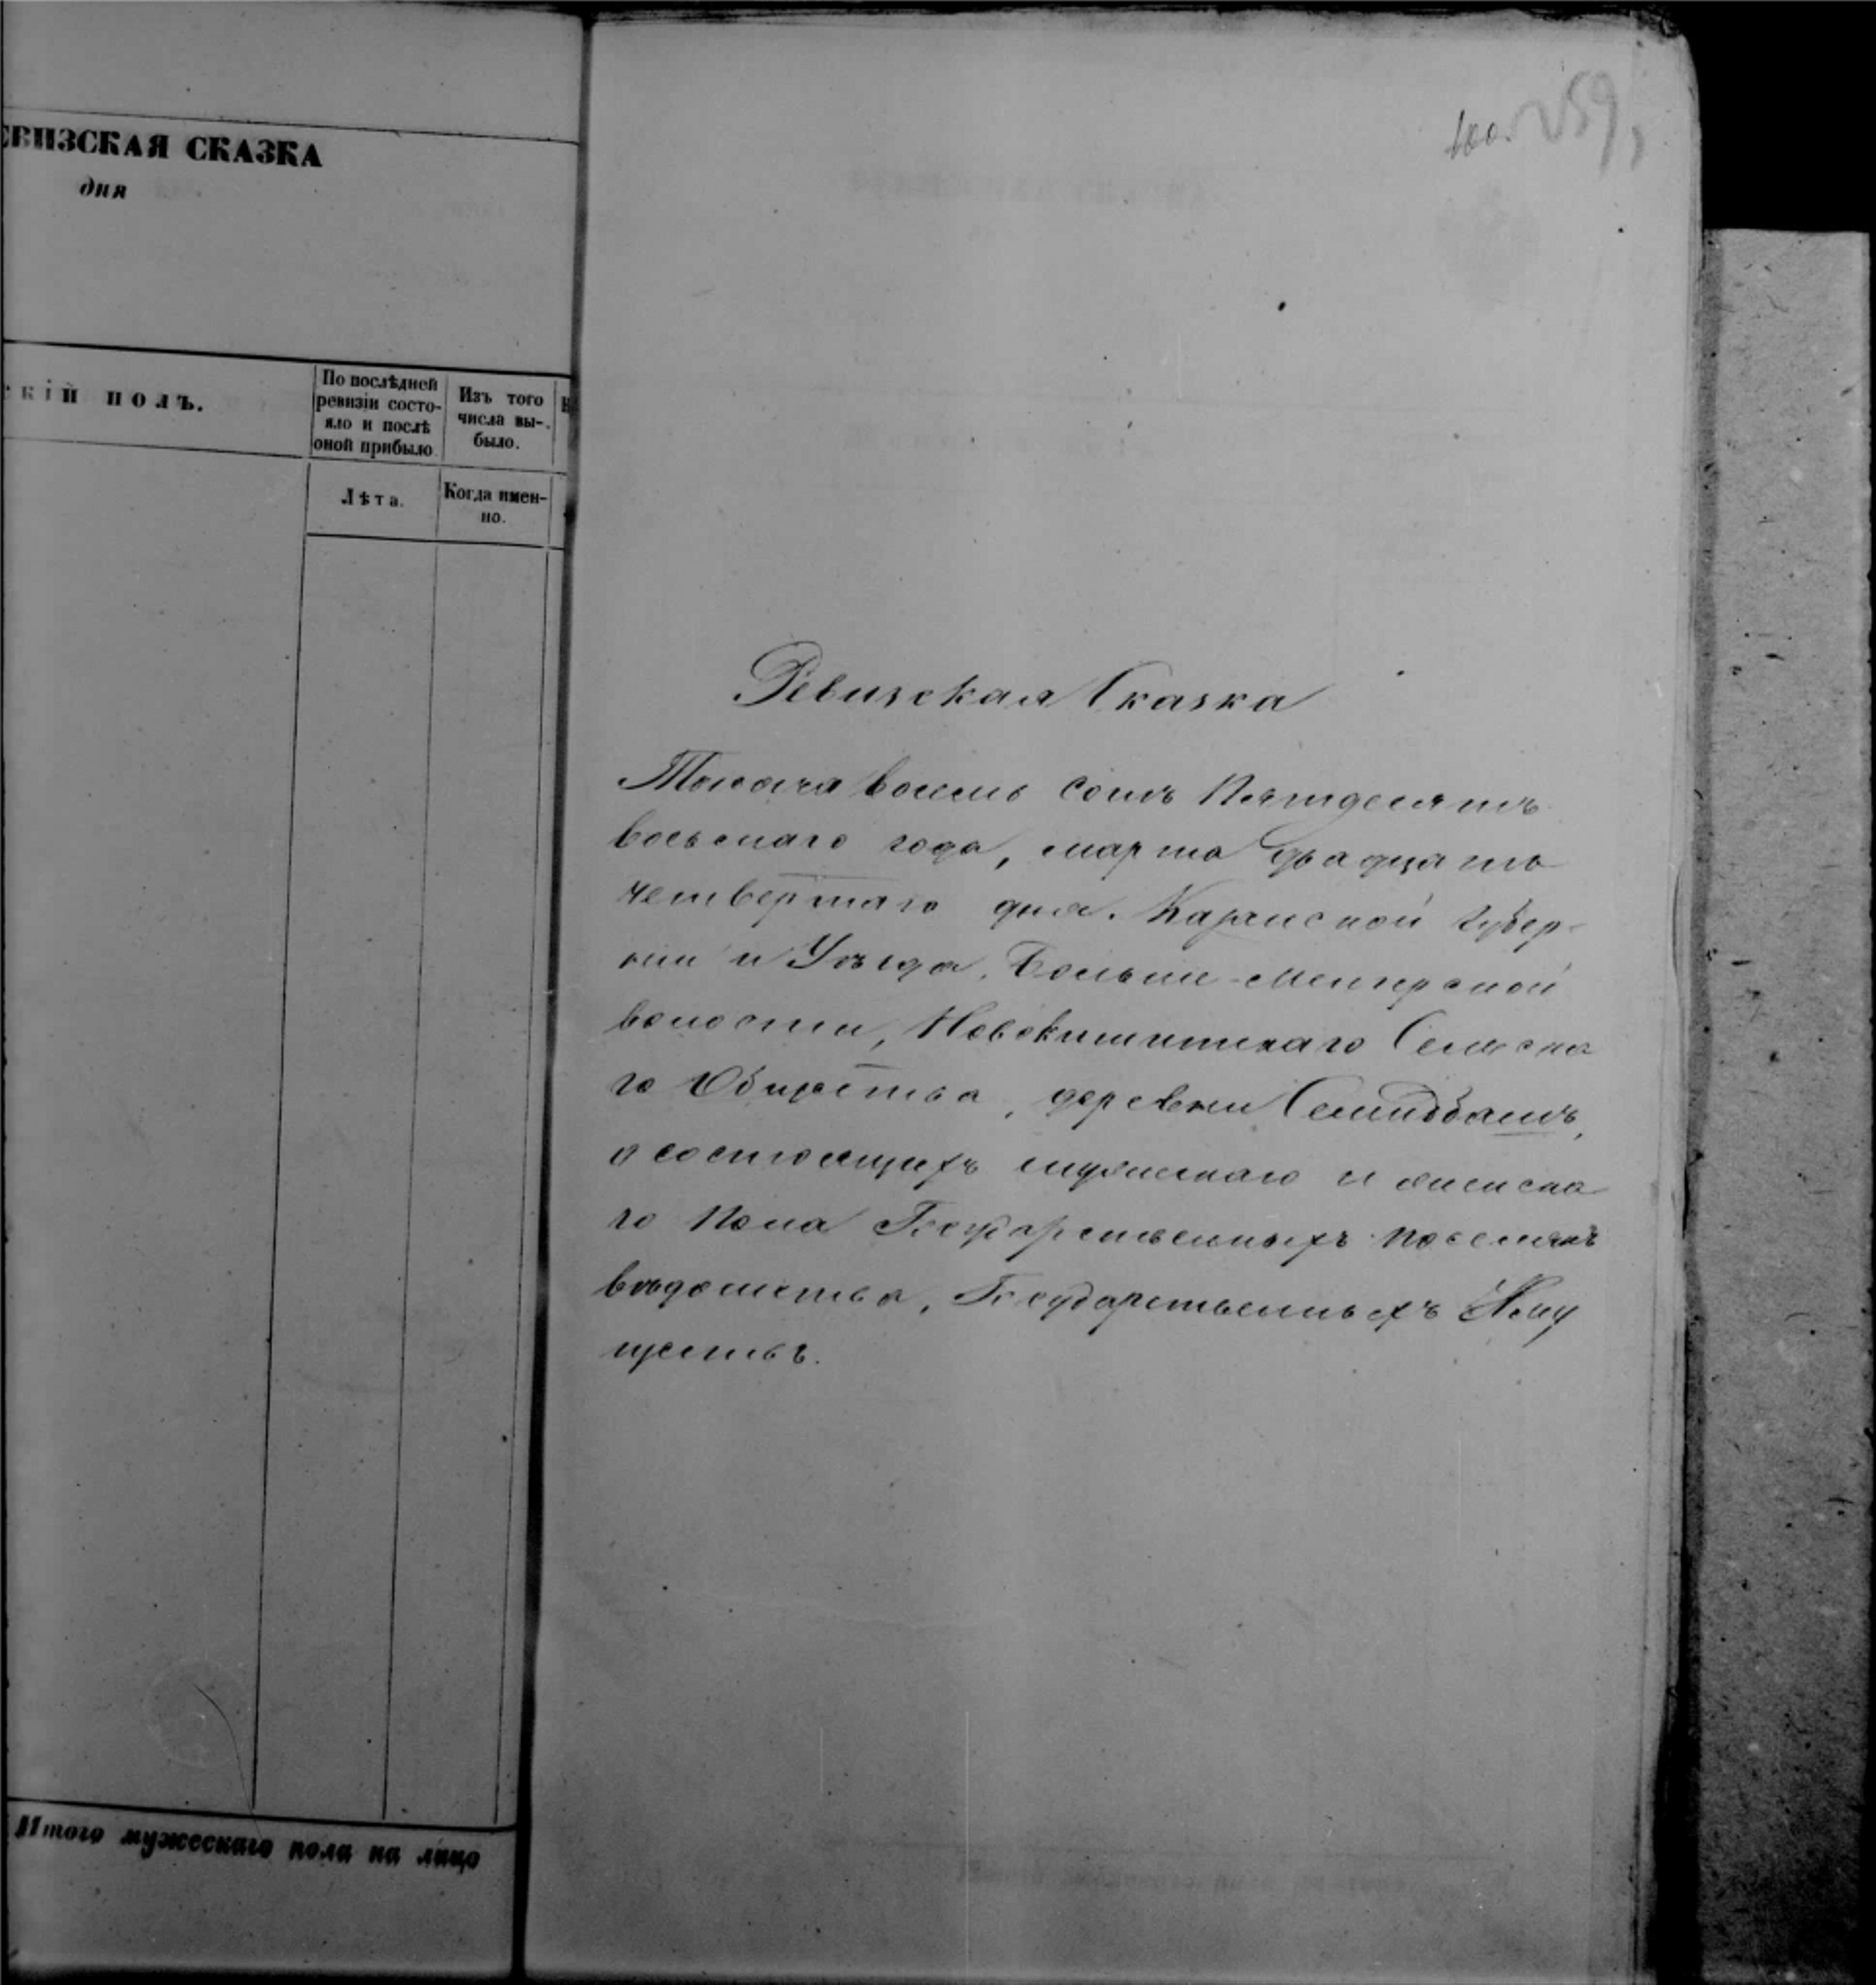 ЕВИЗСКАЯ СКАЗКА
дня
скій полъ.
По послѣдней
ревизіи состо-
яло и послѣ
оной прибыло.
Изъ того
числа вы-
было.
Лѣта.
Когда имен-
но.
Итого мужескаго пола на лицо
100. 259
Ревизская Сказка
Тысяча восемь сотъ Пятдесятъ
восьмаго года, марта двадцать
четвертаго дня. Казанской Губер-
ніи и Уѣзда, Больше-Менгерской
волости, Новокишитскаго Сельска
го Общества, деревни
о состоящихъ мужескаго и женска
го Пола Государственныхъ Поселянъ
вѣдомства, Государственныхъ Иму
ществъ.